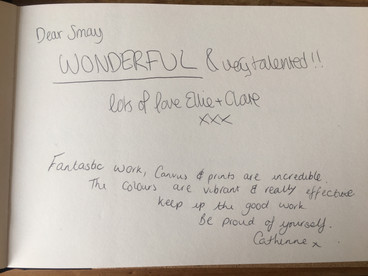 Dear Smay
WONDERFUL & very talented!!
lots of love Ellie + Clare
xxx
Fantastic work, Canvus & prints are incredible.
The colours are vibrant & really effective
keep up the good work
Be proud of yourself.
Catherine x